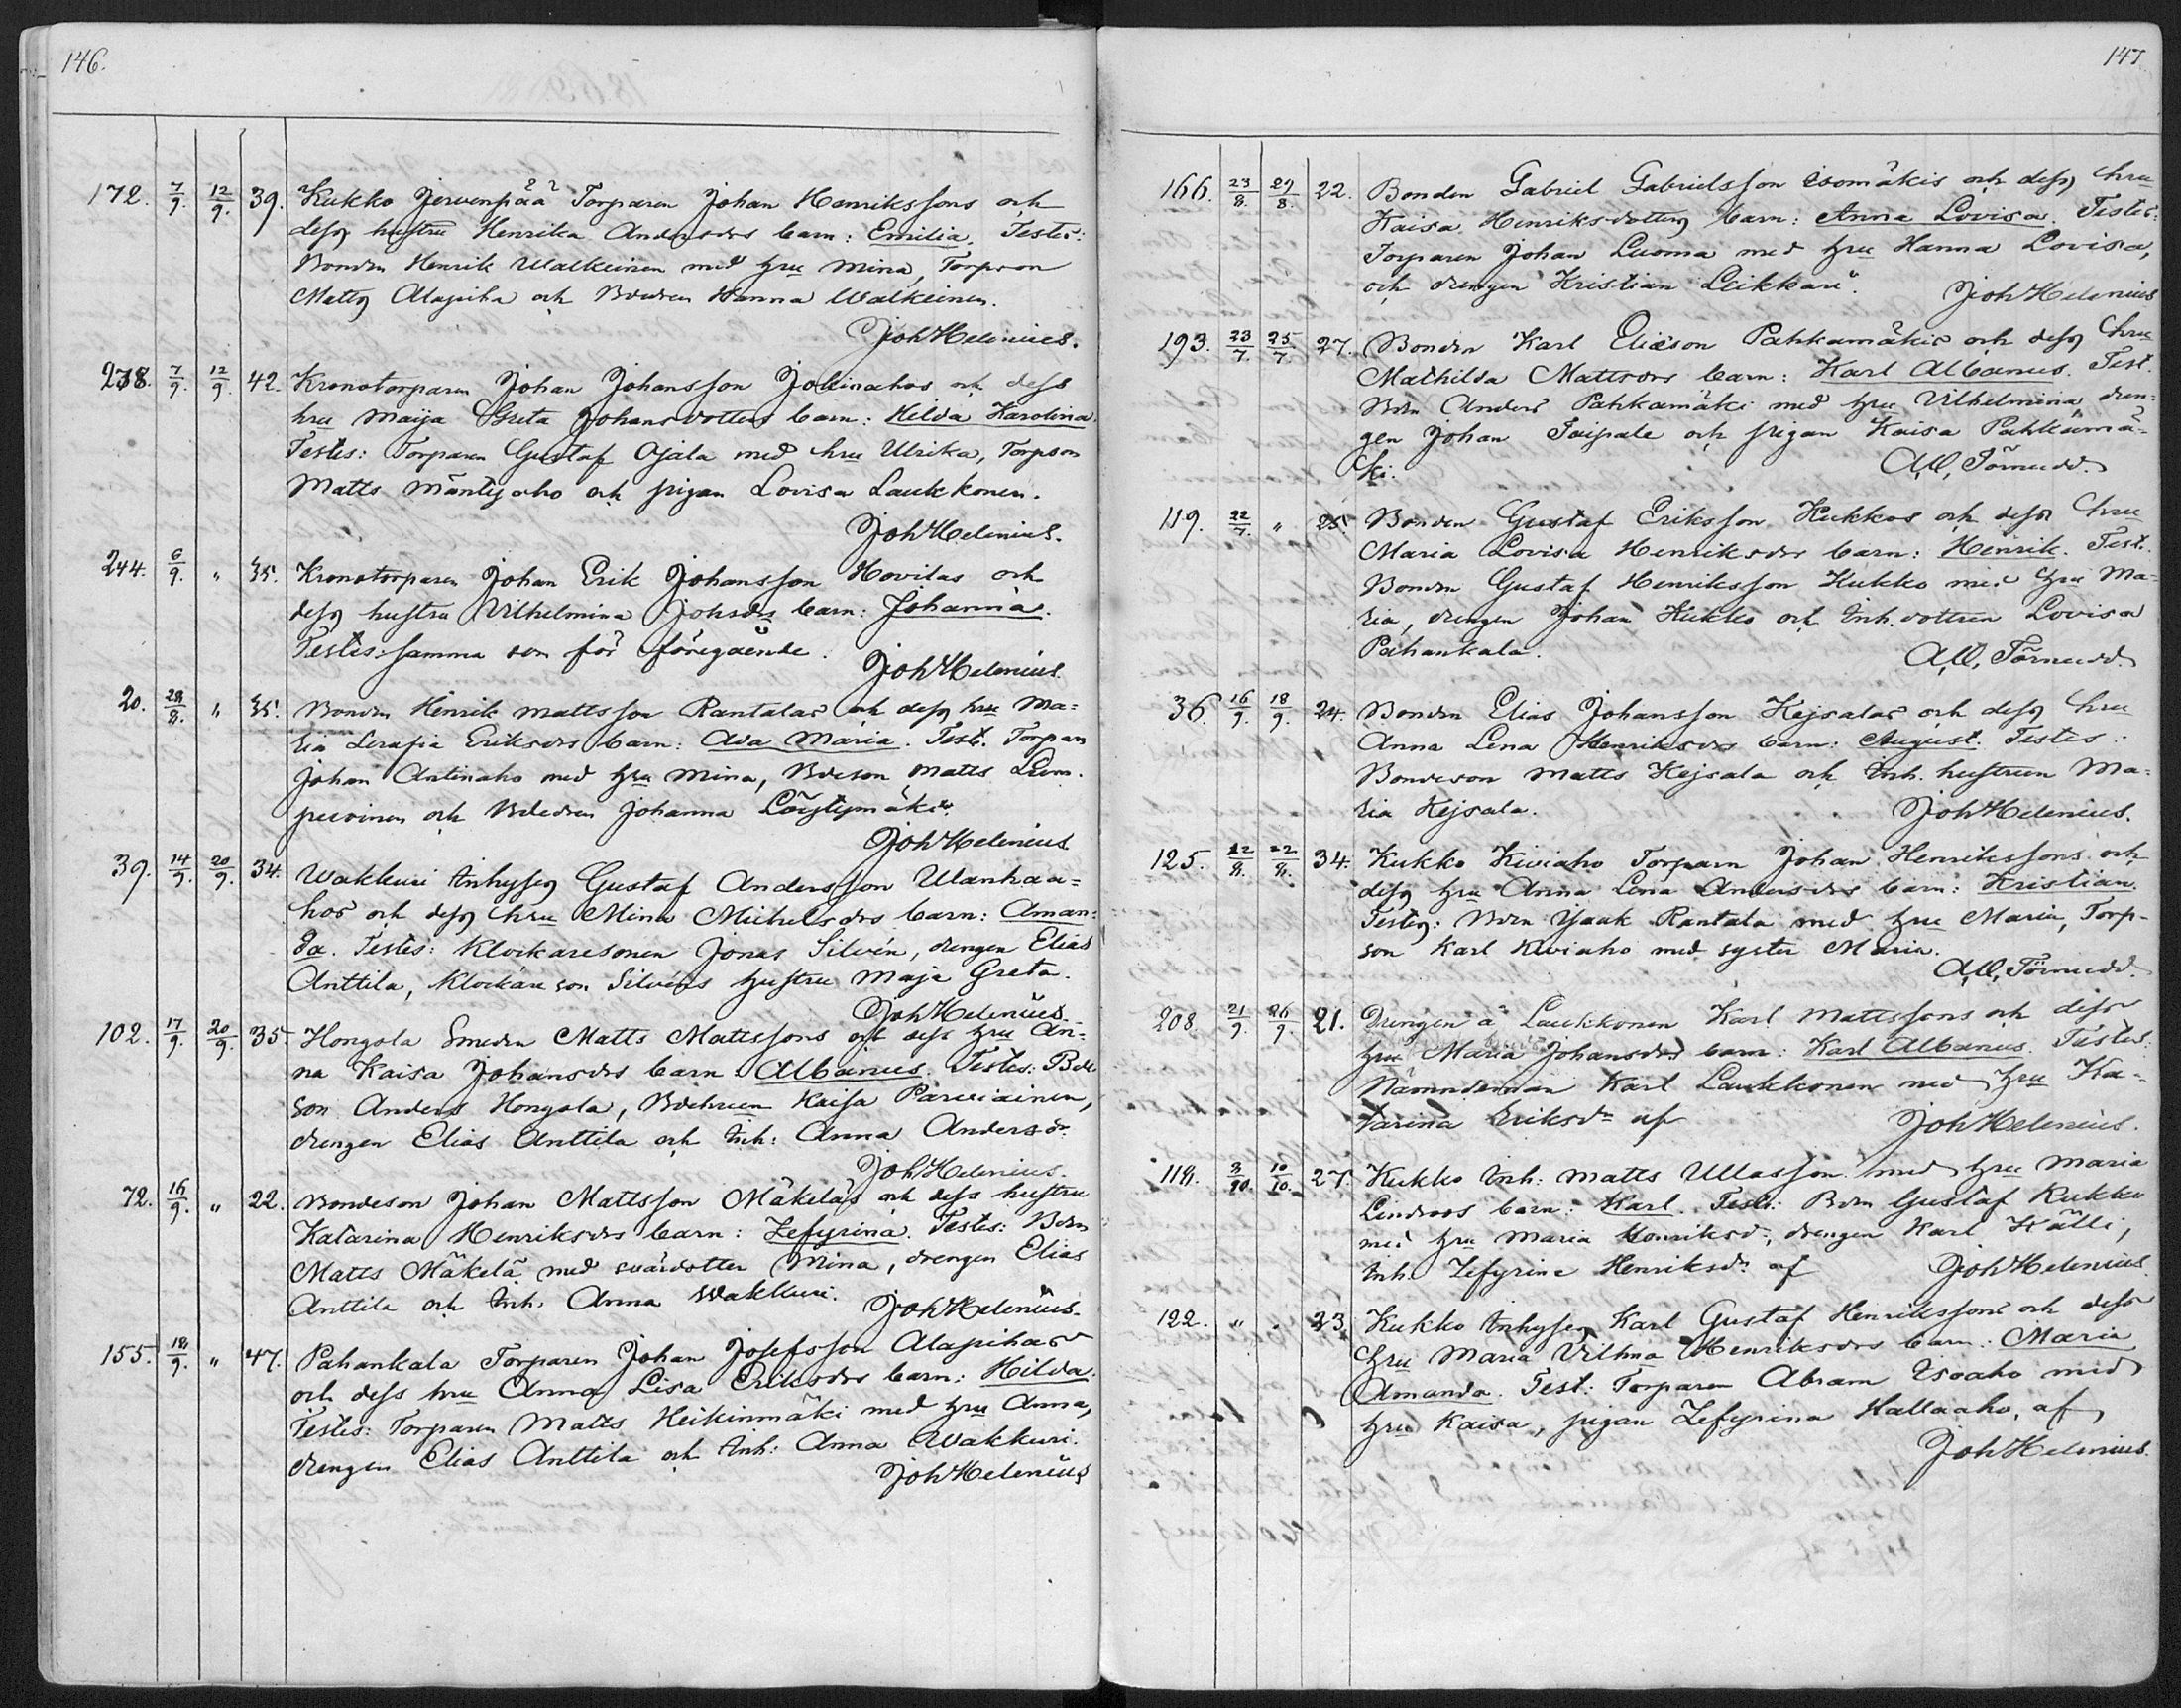 146.
172. 7/9. 12/9. 39. Kukko Jervenpää Torparen Johan Henrikssons och
dess hustru Henrika Andersdrs barn: Emilia. Testes:
Bonden Henrik Walkeinen med hru Mina, Torpson
Matts Alapiha och Bdedren Hanna Walkeinen.
Joh Helenius.
238. 7/9. 12/9. 42. Kronotorparen Johan Johansson och dess
hru Maija Greta Johansdotters barn: Hilda Karolina.
Testes: Torparen Gustaf Ojala med hru Ulrika, Torpson
Matts Mäntyaho och pigan Lovisa Laukkonen.
Joh Helenius.
244. 6/9. " 35. Kronotorparen Johan Erik Johansson Hovilas och
dess hustru Vilhelmina Johsdrs barn: Johanna.
Testes: samma som för föregående.
Joh Helenius.
20. 28/8. " 35. Bonden Henrik Mattsson Rantalas och dess hru Ma=
ria Serafia Eriksdrs barn: Ada Maria. Test. Torparn
Johan Antinaho med hru Mina, Bdeson Matts
och Bdedren Johanna Löytymäki.
Joh Helenius
39. 14/9. 20/9. 34. Wakkuri Inhyses Gustaf Andersson Wanhaa=
hos och dess hru Mina Michelsdrs barn: Aman=
da. Testes: Klockaresonen Jonas Silvén, drengen Elias
Anttila, Klockare son Silvéns hustru Maja Greta.
Joh Helenius.
102. 17/9. 20/9. 35 Hongola Smeden Matts Mattssons och dess hru An=
na Kaisa Johansdrs barn: Albanus. Testes: Bde
son Anders Hongola, Bdehrun Kaisa Parviainen,
drengen Elias Anttila och Inh: Anna Andersdr.
Joh Helenius.
72. 16/9. " 22. Bondeson Johan Mattsson Mäkeläs och dess hustru
Katarina Henriksdrs barn: Zefyrina. Testes: Bdn
Matts Mäkelä med svärdotter Mina, drengen Elias
Anttila och Inh. Anna Wakkuri.
Joh Helenius.
155. 18/9. " 47. Pahankala Torparen Johan Josefsson Alapihas
och dess hru Anna Lisa Eriksdrs barn: Hilda.
Testes: Torparen Matts Heikinmäki med hru Anna,
drengen Elias Anttila och Inh: Anna Wakkuri.
Joh Helenius
147
166. 23/8. 29/8. 22. Bonden Gabriel Gabrielsson Isomäkis och dess hru
Kaisa Henriksdotters barn: Anna Lovisa. Testes:
Torparen Johan Luoma med hru Hanna Lovisa,
och drengen Kristian Leikkari.
Joh Helenius
193. 23/7. 25/7. 27. Bonden Karl Eliasson Pahkamäkis och dess hru
Mathilda Mattsdrs barn: Karl Albanus. Test.
Bdn Anders Pahkamäki med hru Vilhelmina dren=
gen Johan Taipale och pigan Kaisa Pahkamä=
ki.
A.W. Törnudd.
119. 22/7. " 25. Bonden Gustaf Eriksson Kukkos och dess hru
Maria Lovisa Henriksdrs barn: Henrik. Test.
Bonden Gustaf Henriksson Kukko med hru Ma=
ria, drengen Johan Kukko och Inh. dottren Lovisa
Pahankala.
A.W. Törnudd.
36. 16/9. 18/9. 24. Bonden Elias Johansson Kejsalas och dess hru
Anna Lena Henriksdrs barn: August. Testes:
Bondeson Matts Kejsala och Inh. hustrun Ma=
ria Kejsala.
Joh Helenius.
125. 12/8. 22/8. 34. Kukko Kiviaho Torparn Johan Henrikssons och
dess hru Anna Lena Andersdrs barn: Kristian.
Testes: Bdn Isaak Rantala med hru Maria, Torp-
son Karl Kiviaho med syster Maria.
A.W. Törnudd.
208. 21/9. 26/9. 21. Drengen å Laukkonen Karl Mattssons och dess
hru Maria Johansdrs barn: Karl Albanus. Testes:
Nämndeman Karl Laukkonen med hru Ka-
tarina Eriksdr af
Joh Helenius.
118. 3/10. 10/10. 27. Kukko Inh: Matts Ullasson med hru Maria
Lindroos barn: Karl. Test: Bdn Gustaf Kukko
med hru Maria Henriksdr, drengen Karl Källi,
Inh. Zefyrina Henriksdr af
Joh Helenius.
122. " . 23. Kukko Inhyses Karl Gustaf Henrikssons och dess
hru Maria Vilhna Henriksdrs barn: Maria
Amanda. Test: Torparen Abram Isoaho med
hru Kaisa, pigan Zefyrina Hallaaho, af
Joh Helenius.